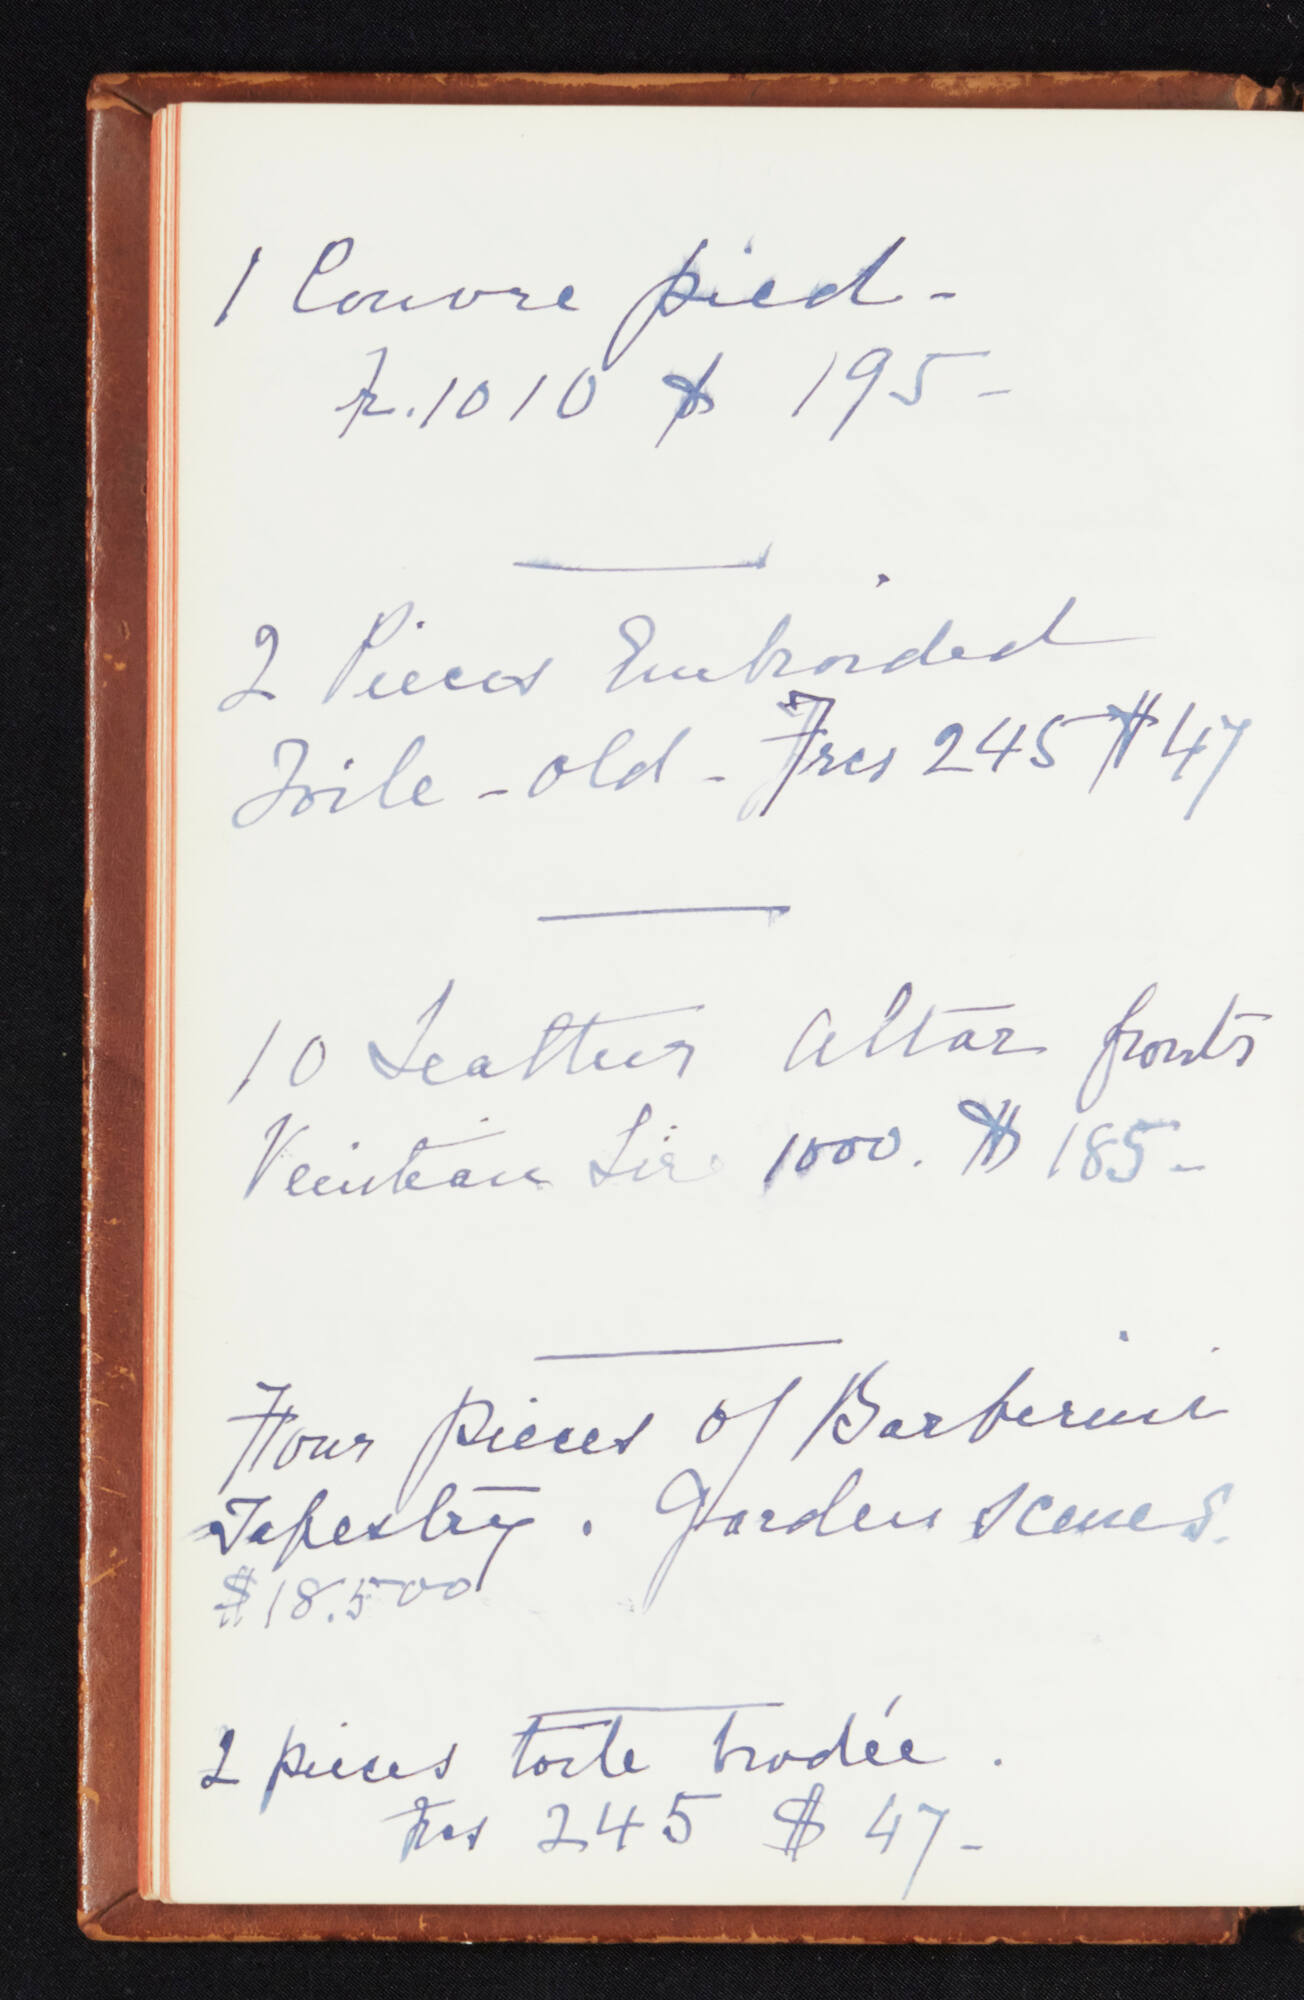 1 Couvre pied -
Fr. 1010 $ 195 -
2 Pieces Embroided
Toile - old - Frcs 245 $ 47
10 Leather altar fronts
Venitian Lire 1000. $ 185 -
Four pieces of Barberini
Tapestry. Garden scenes.
$ 18.500
2 pieces toile brodée.
Frcs 245 $ 47 -